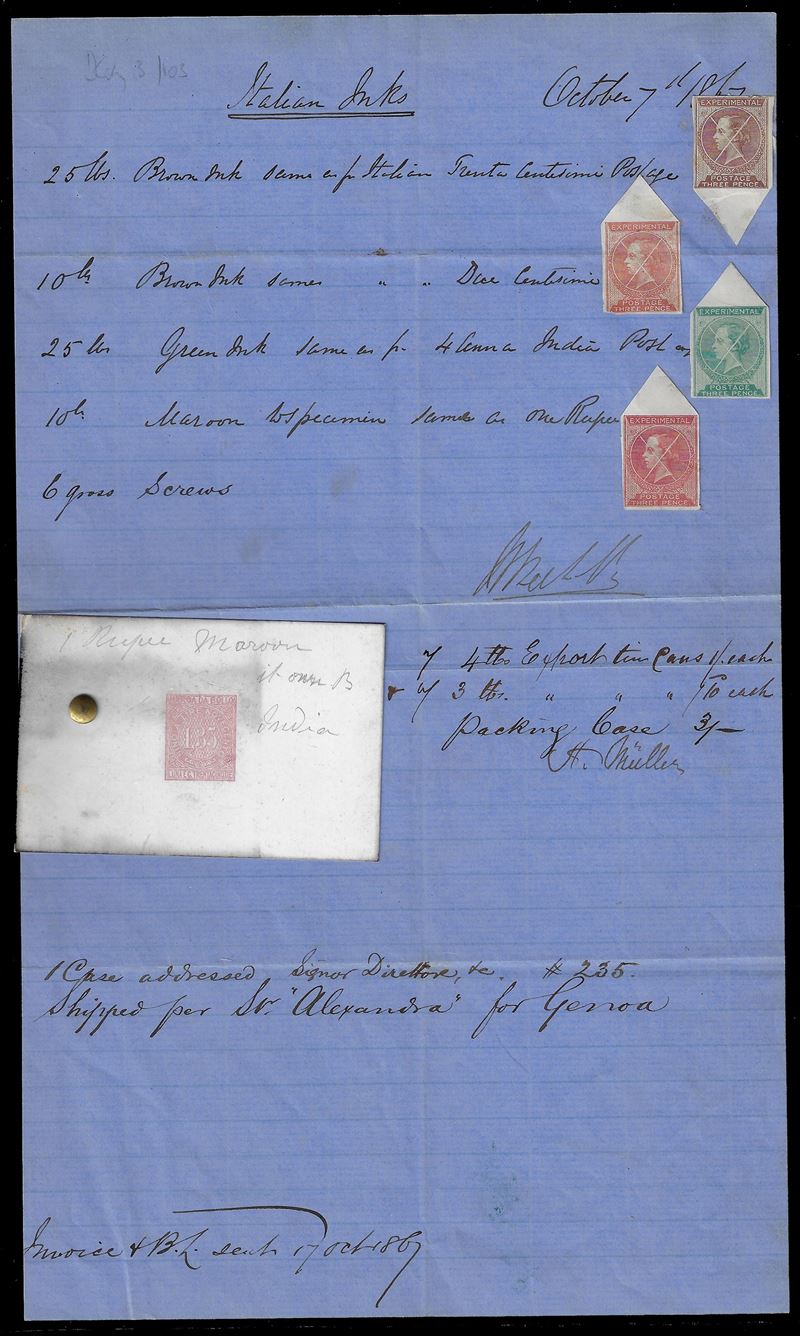 Italian Inks October 7th 1867
25 lbs. Brown Ink same as pr Italian Trenta Centesimi Postage
10 lbs Brown Ink same " " Due Centesimi
25 lbs Green Ink same as pr 4 anna India Postage
10 lbs Maroon to specimen same as one Rupee
6 gross Screws
EXPERIMENTAL
POSTAGE
THREE PENCE
EXPERIMENTAL
POSTAGE
THREE PENCE
EXPERIMENTAL
POSTAGE
THREE PENCE
EXPERIMENTAL
POSTAGE
THREE PENCE
1 Rupee Maroon
India
1.35
7 4 lbs Export tin Cans 1/. each
7 3 lbs. " " " /10 each
Packing Case 3/-
H. Müller
1 Case addressed Signor Direttore, &c. # 235.
Shipped per Sr. "Alexandra" for Genoa
Invoice & B.L. sent 17 Oct 1867